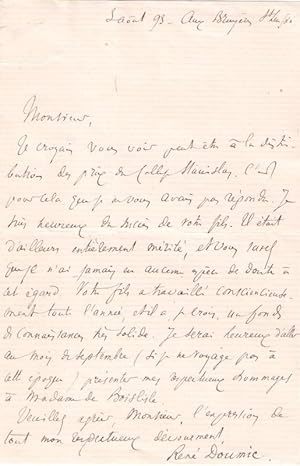 3 août 93 - Aux Bruyères
Monsieur,
Je croyais vous voir peut-être à la distri-
bution des prix du Collège Stanislas. C'est
pour cela que je ne vous avais pas répondu. Je
suis heureux du succès de votre fils. Il était
d'ailleurs entièrement mérité, et vous savez
que je n'ai jamais eu aucune espèce de doute à
cet égard. Votre fils a travaillé consciencieuse-
ment toute l'année, et il a, je crois, un fonds
de connaissances très solide. Je serai heureux d'aller
au mois de septembre (si je ne voyage pas à
cette époque) présenter mes respectueux hommages
à Madame de Boislisle.
Veuillez agréer, Monsieur l'expression de
tout mon respectueux dévouement,
René Doumic.